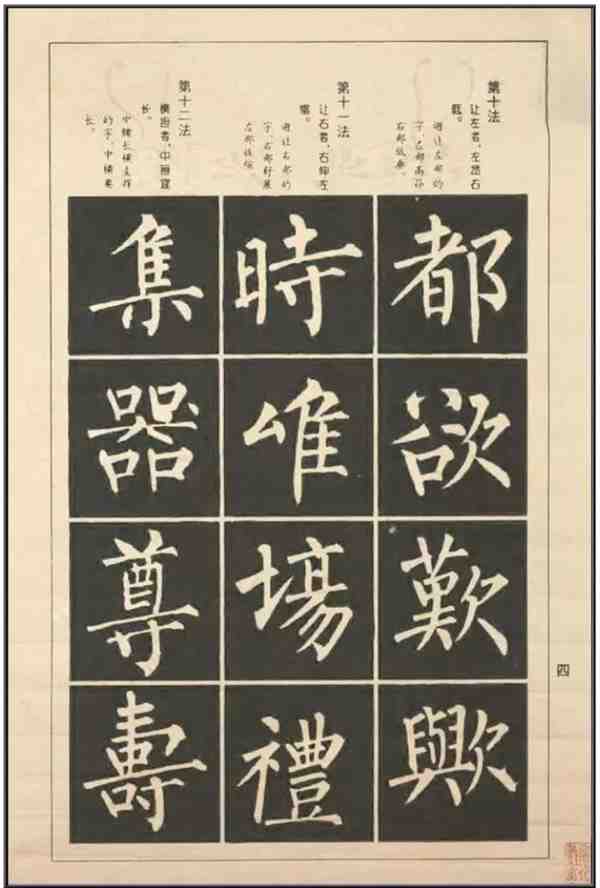 第十法
让左者，左昂右
低。
谓让左部的
字，左部高昂
右部低垂。
都
欲
歎
歟
第十一法
让右者，右伸左
缩。
谓让右部的
字，右部舒展
左部收缩
時
唯
場
禮
第十二法
横担者，中画宜
长。
中横长横支撑
的字，中横要
长。
集
器
尊
壽
四